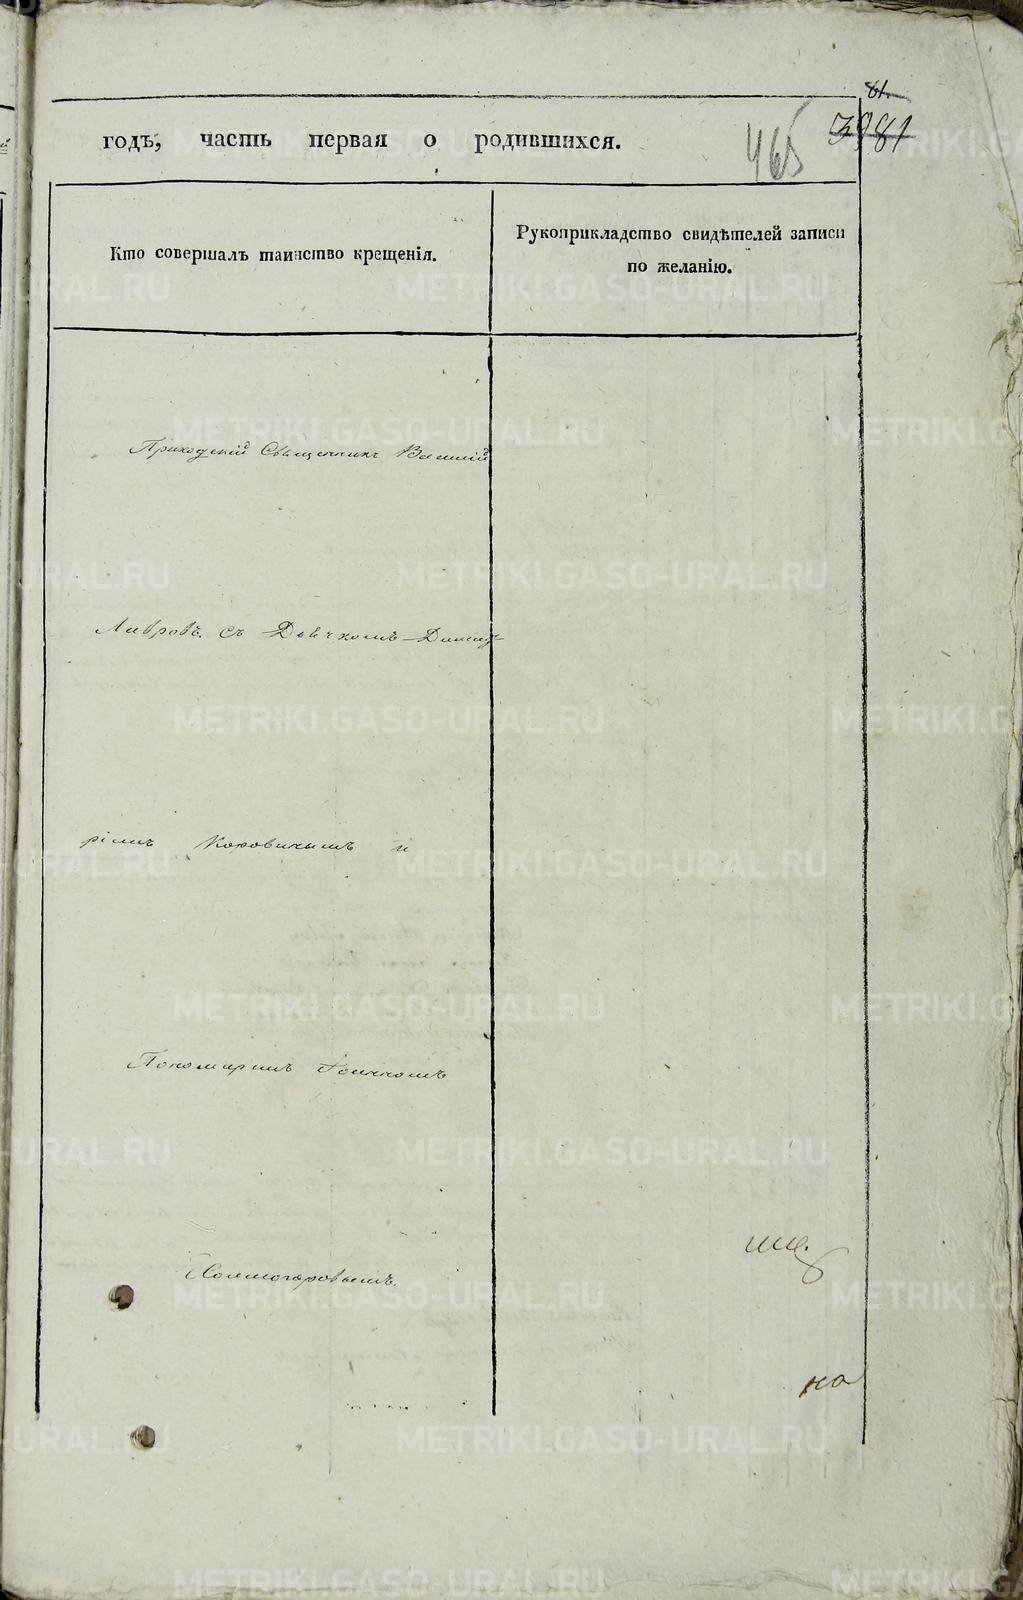 81.
3981
465
годъ, часть первая о родившихся.
Кто совершалъ таинство крещенія.
Рукоприкладство свидѣтелей записи
по желанію.
Приходскій Священникъ Василій
Лавровъ съ Дьячкомъ Димит
ріемъ Коровинымъ и
Пономаремъ Іоанномъ
Холмогоровымъ.
на
METRIKI.GASO-URAL.RU